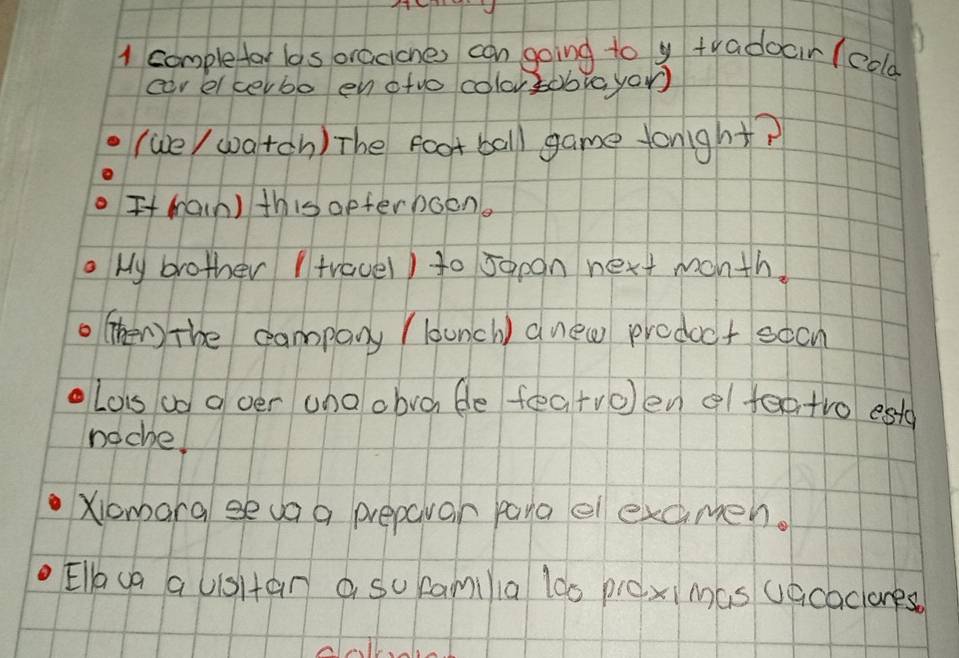 1 Completar las oraciones con going to y tradocir (cold
car el verbo en otro color sobrayar)
• (we/watch) The foot ball game tonight?
• It (rain) this apternoon.
• My brother (travel) to Japan next month.
• (Then) The campany (lounch) a new prodoct soon
• Lois va a ver una obra (de teatro) en el teatro esta
noche.
• Xiomara se va a preparar para el examen.
• Ella va a visitar a su familia las proximas vacaciones.